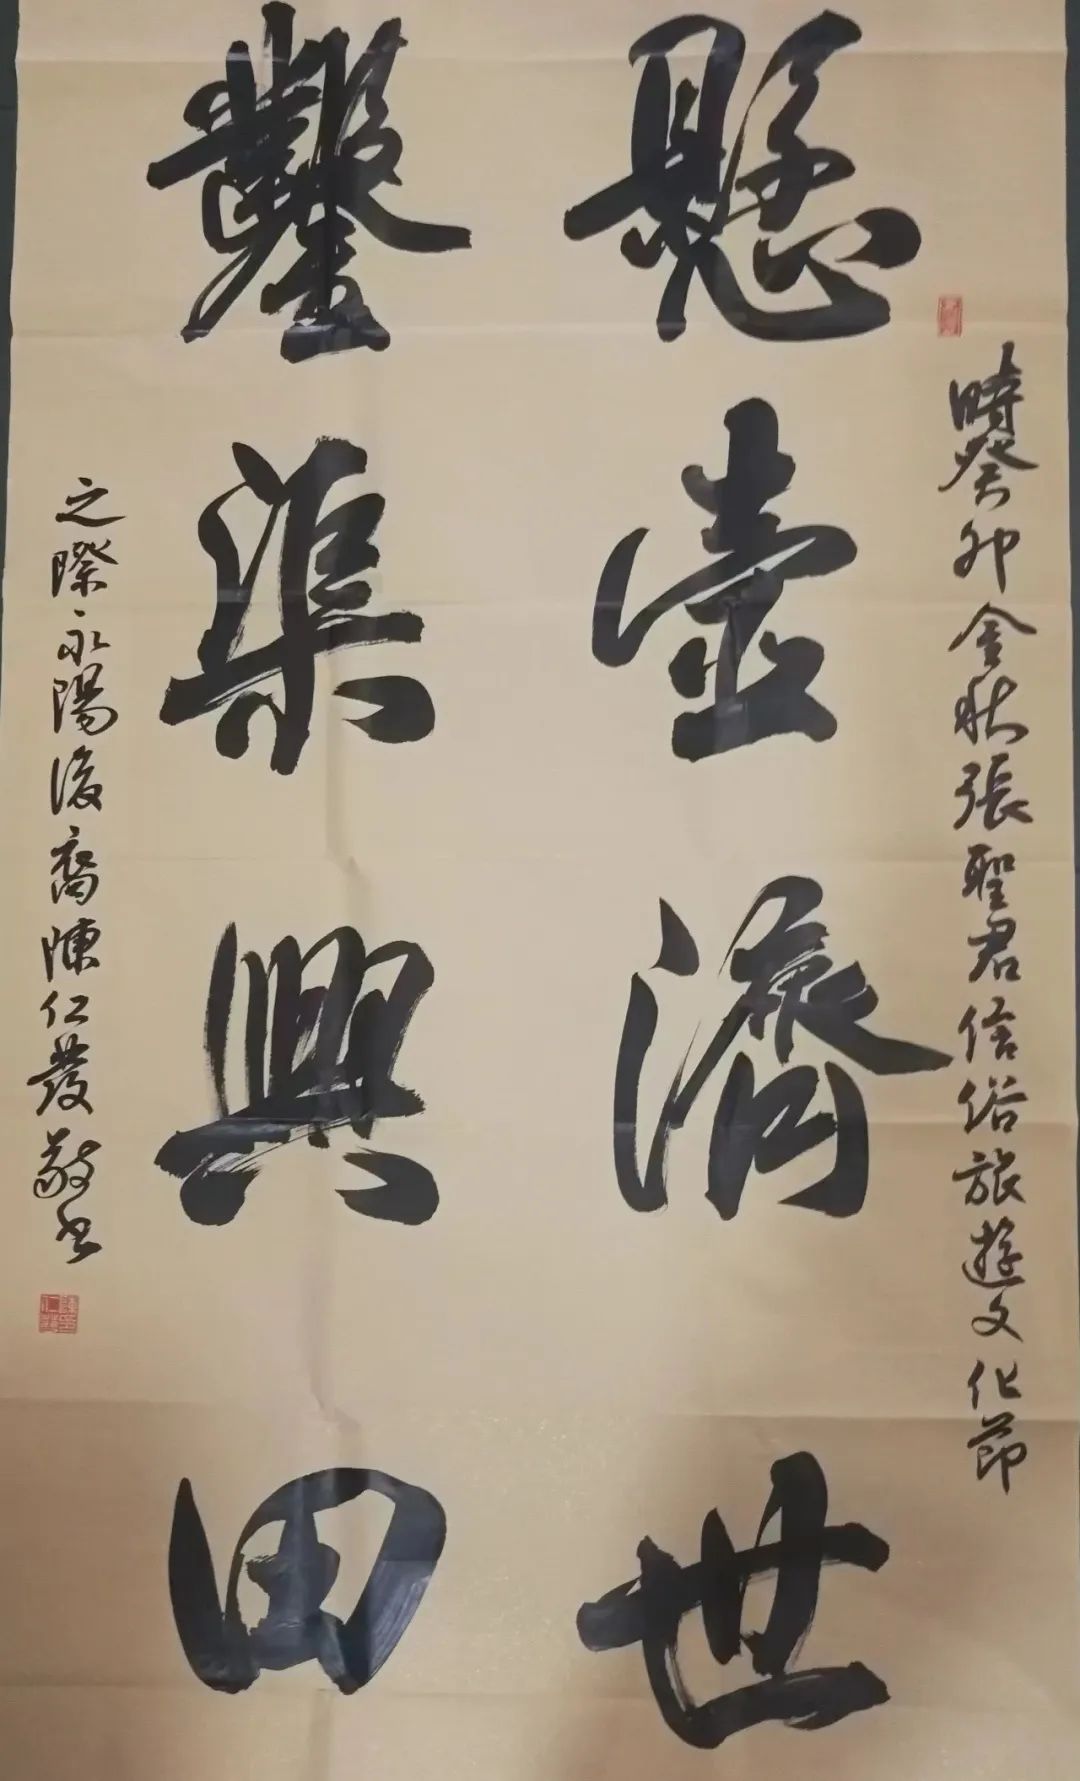 時癸卯金秋張聖君信俗旅遊文化節
懸壺濟世
鑿渠興田
之際永陽後裔陳仁發敬書